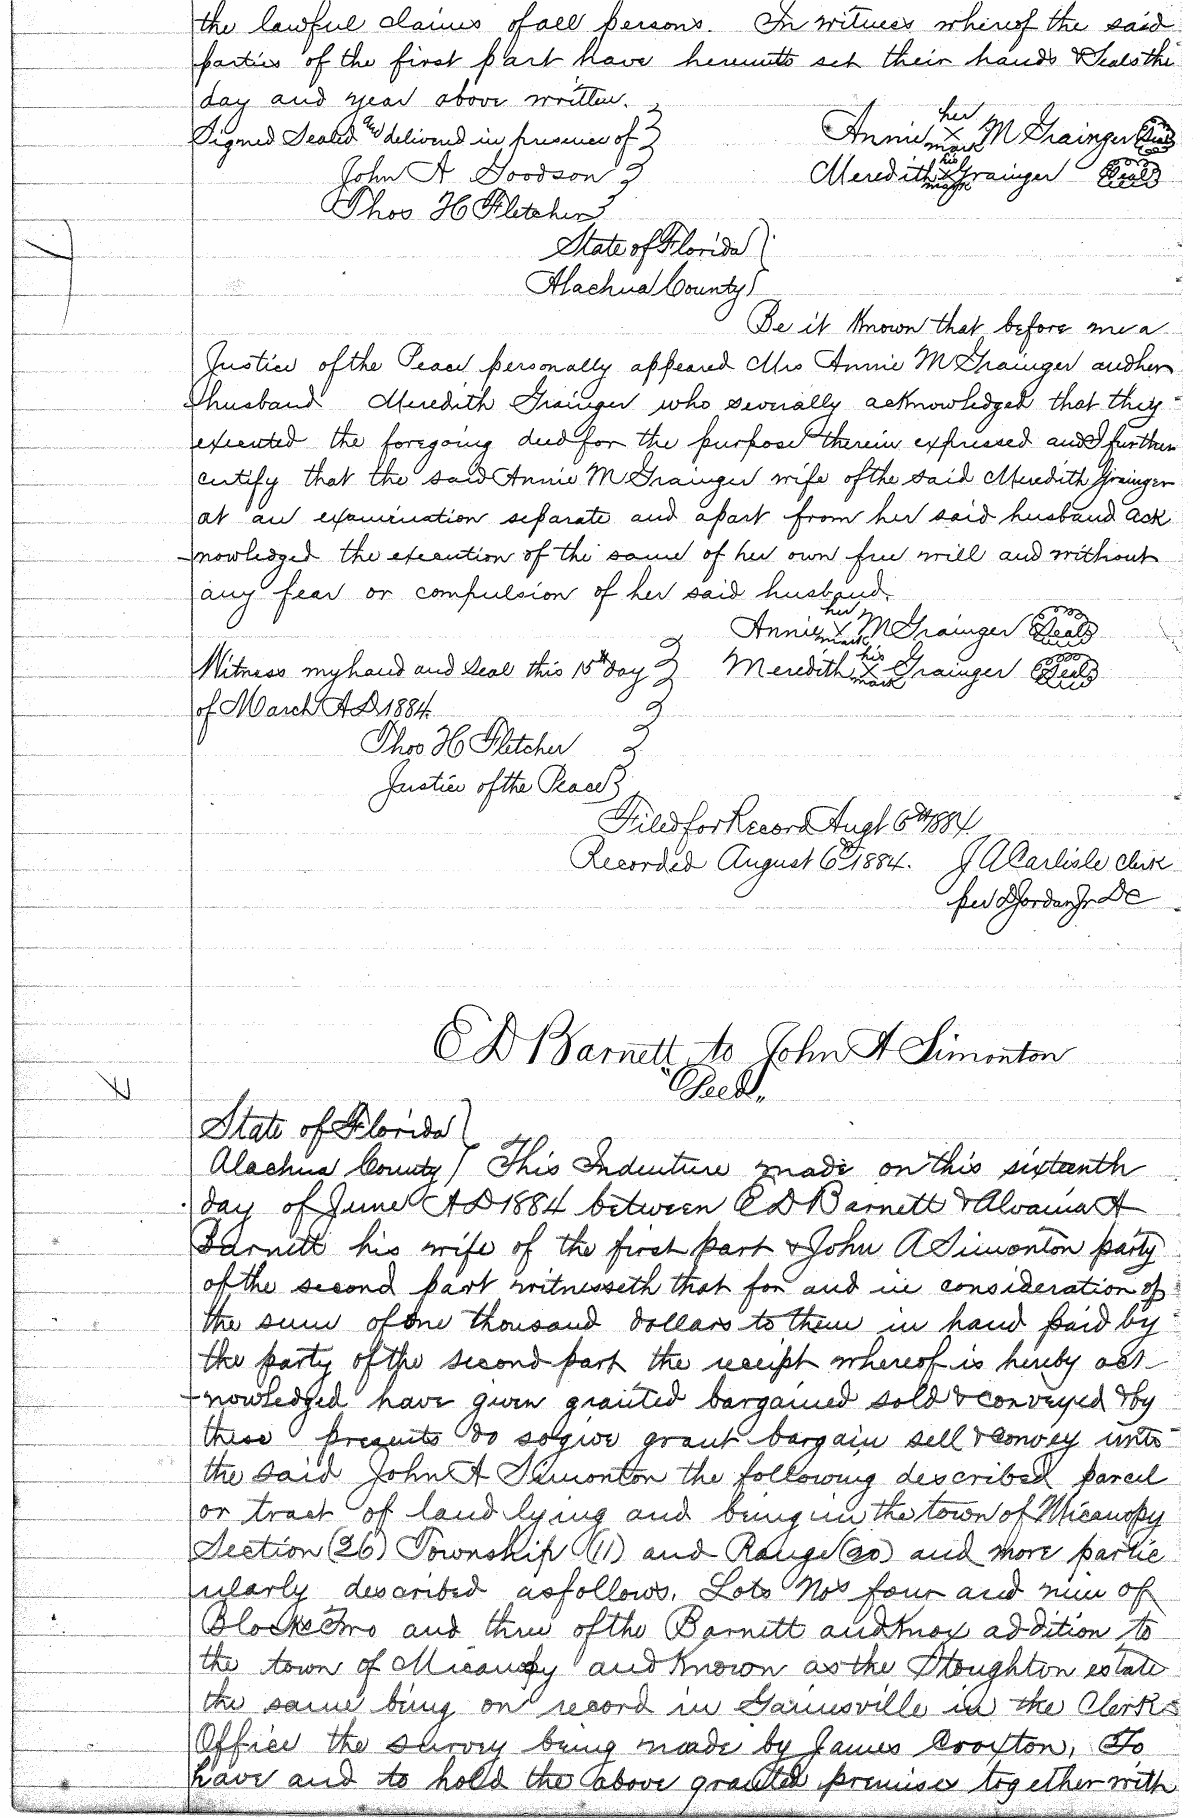 the lawful claims of all persons. In witness whereof the said
parties of the first part have hereunto set their hands & Seals the
day and year above written.
Signed Sealed and delivered in presence of
her
Annie X M Grainger Seal
mark
John A Goodson
his
Meredith X Grainger Seal
mark
Thos H Fletcher
State of Florida
Alachua County
Be it Known that before me a
Justice of the Peace personally appeared Mrs Annie M Grainger and her
husband Meredith Grainger who severally acknowledged that they
executed the foregoing deed for the purpose therein expressed and I further
certify that the said Annie M Grainger wife of the said Meredith Grainger
at an examination separate and apart from her said husband ack
nowledged the execution of the same of her own free will and without
any fear or compulsion of her said husband.
her
Annie X M Grainger Seal
mark
Witness my hand and Seal this 15th day
his
Meredith X Grainger Seal
mark
of March AD 1884
Thos H Fletcher
Justice of the Peace
Filed for Record Augt 6th 1884
Recorded August 6th 1884. J A Carlisle Clerk
per D Jordan Jr DC
E D Barnett to John A Simonton
"Deed"
State of Florida
Alachua County This Indenture made on this sixteenth
day of June AD 1884 between E D Barnett & Alvania A
Barnett his wife of the first part & John A Simonton party
of the second part witnesseth that for and in consideration of
the sum of one thousand dollars to them in hand paid by
the party of the second part the receipt whereof is hereby ack
nowledged have given granted bargained sold & conveyed & by
these presents do so give grant bargain sell & convey unto
the said John A Simonton the following described parcel
or tract of land lying and being in the town of Micanopy
Section (26) Township (11) and Range (20) and more partic
ularly described as follows. Lots Nos four and nine of
Blocks Two and three of the Barnett and Knox addition to
the town of Micanopy and Known as the Stoughton estate
the same being on record in Gainesville in the Clerks
Office the survey being made by James Croxton, To
have and to hold the above granted premises together with